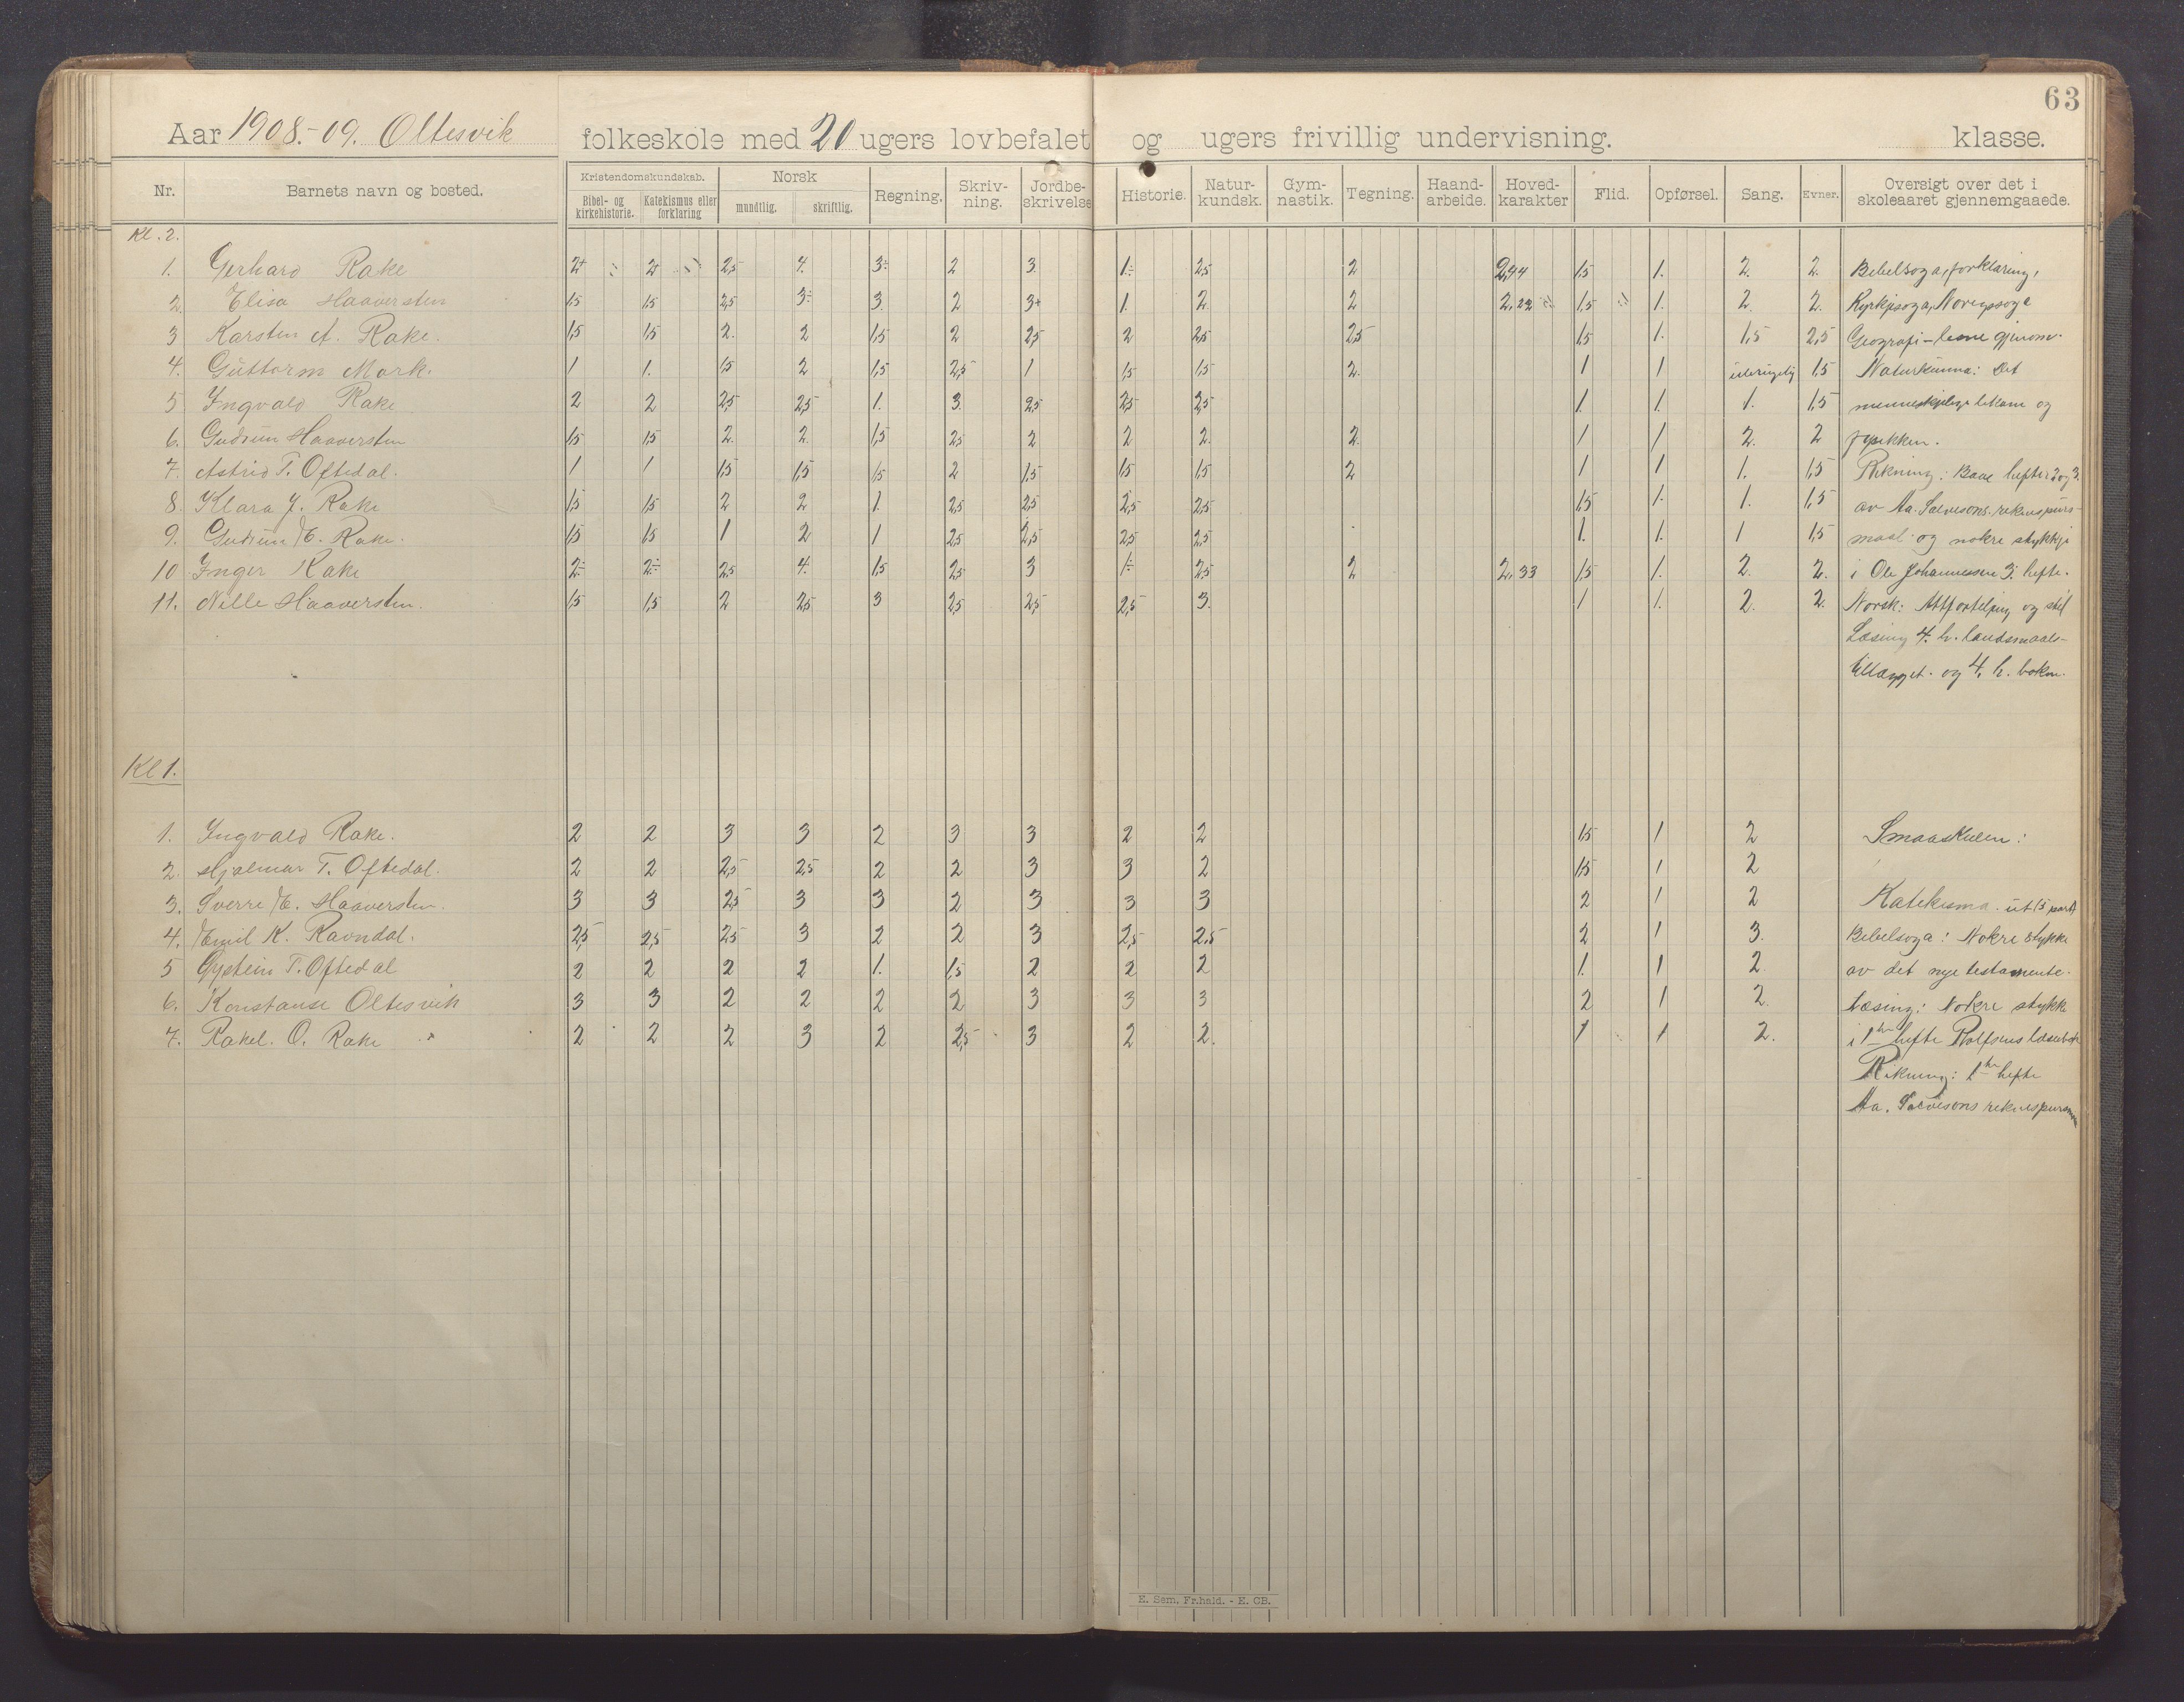 63
Aar 1908.-09. Oltesvik folkeskole med 20 ugers lovbefalet og ugers frivillig undervisning. klasse.
Nr. Barnets navn og bosted. Kristendomskundskab. Norsk Regning. Skriv- Jordbe- Historie. Natur- Gym- Tegning. Haand- Hoved- Flid. Opførsel. Sang. Evner. Oversigt over det i
Bibel- og kirkehistorie. Katekismus eller forklaring mundtlig. skriftlig. ning. skrivelse kundsk. nastik. arbeide. karakter skoleaaret gjennemgaaede.
Kl. 2.
1. Gerhard Rake 2+ 2+ 2,5 4. 3÷ 2 3. 1÷ 2,5 2 2,44 1,5 1. 2. 2. Bibelsoga, forklaring,
2. Elisa Haaversten 1,5 1,5 2,5 3÷ 3. 2 3+ 1. 2. 2 2,22 1,5 1. 2. 2. Kyrkjesoga, Noregssoga
3 Karsten A. Rake. 1,5 1,5 2. 2 1,5 2 2,5 2 2,5 2,5 1,5 1. 1,5 2,5 Geografi - gjenom.
4. Guttorm Mark. 1 1. 1,5 2 1,5 2,5 1 1,5 1,5 2. 1 1 1,5 Naturkunna: Det
5 Ingvald Rake 2 2 2,5 2,5 1. 3. 2,5 2,5 2,5 1. 1. 1. 1,5 menneskjelege lekam og
6. Gudrun Haaversten 1,5 1,5 2. 2. 1,5 2,5 2 2 2. 2. 1 1 2. 2 fysikken.
7. Astrid T. Oftedal. 1 1 1,5 1,5 1,5 2 1,5 1,5 1,5 2 1 1 1. 1,5 Rekning: Baae hefte 2 og 3.
8. Klara J. Rake 1,5 1,5 2 2 1. 2,5 2,5 2,5 2,5 1,5 1. 1. 1,5 av Aa. Salvesons. reknespurs-
9. Gudrun E. Rake. 1,5 1,5 1 2 1 2,5 2,5 2,5 2,5 1. 1. 1 1,5 maal og nokre stykkje
10 Inger Rake 2÷ 2÷ 2,5 4. 1,5 2,5 3 1÷ 2,5 2 2,33 1,5 1. 2. 2. i Ole Johannesen 3. hefte.
11. Nille Haaversten. 1,5 1,5 2 2,5 3 2,5 2,5 2,5 3. 1 1. 2. 2. Norsk: Attforteljing og stil
Læsing 4. h. landsmaals-
tillægget. og 4. h. bokm.
Kl 1.
1. Ingvald Rake. 2 2 3 3 2 3 3 2 2 1,5 1 2 Smaaskulen:
2. Hjalmar T. Oftedal. 2 2 2,5 2,5 2 2 3 3 2 1,5 1 2
3. Sverre E. Haaversten. 3 3 2,5 3 3 2 3 3 3 2 1 2 Katekisma. ut (5 part)
4. Emil K. Ravndal. 2,5 2,5 2,5 3 2 2 3 2,5 2,5 2 1 3. Bibelsoga: Nokre stykke
5 Øystein T. Oftedal 2 2 2 2 1. 1,5 2 2 2 1. 1 2 av det nye testamente.
6. Konstanse Oltesvik 3 3 2 2 2 2 3 3 3 2 1 2. Læsing: Nokre stykke
7. Rakel. O. Rake 2 2 2 3 2 2,5 3 2 2. 1 1 2. i 1ste hefte Rolfsens læsebok
Rekning: 1ste hefte
Aa. Salvesons reknespursmaal
E. Sem, Fr.hald. - E. GB.